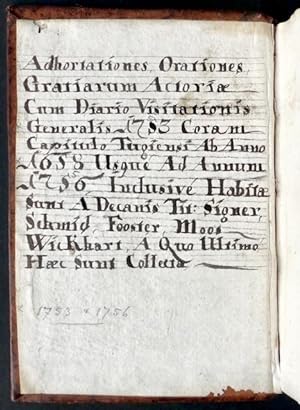 Adhortationes, Orationes,
Gratiarum Actoriæ
Cum Diario Visitationis
Generalis 1753 Coram
Capitulo Tugiensi Ab Anno
1658 Usque Ad Annum
1756 Inclusive Habitæ
Sunt A Decanis Tit: Signer,
Schmid, Fooster, Moos
Wickhart, A Quo Ultimo
Hæc Sunt Collecta
1753 1756